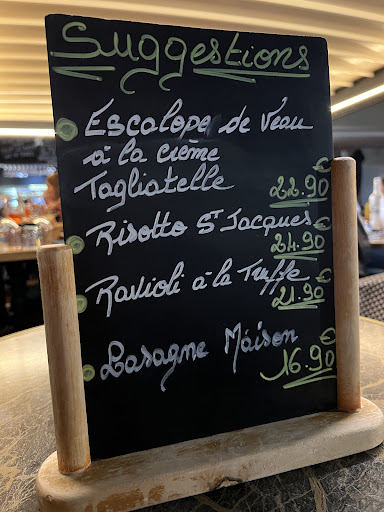 Suggestions
Escalope de Veau
à la crème
Tagliatelle
22.90 €
Risotto St Jacques
24.90 €
Ravioli à la Truffe
21.90 €
Lasagne Maison
16.90 €